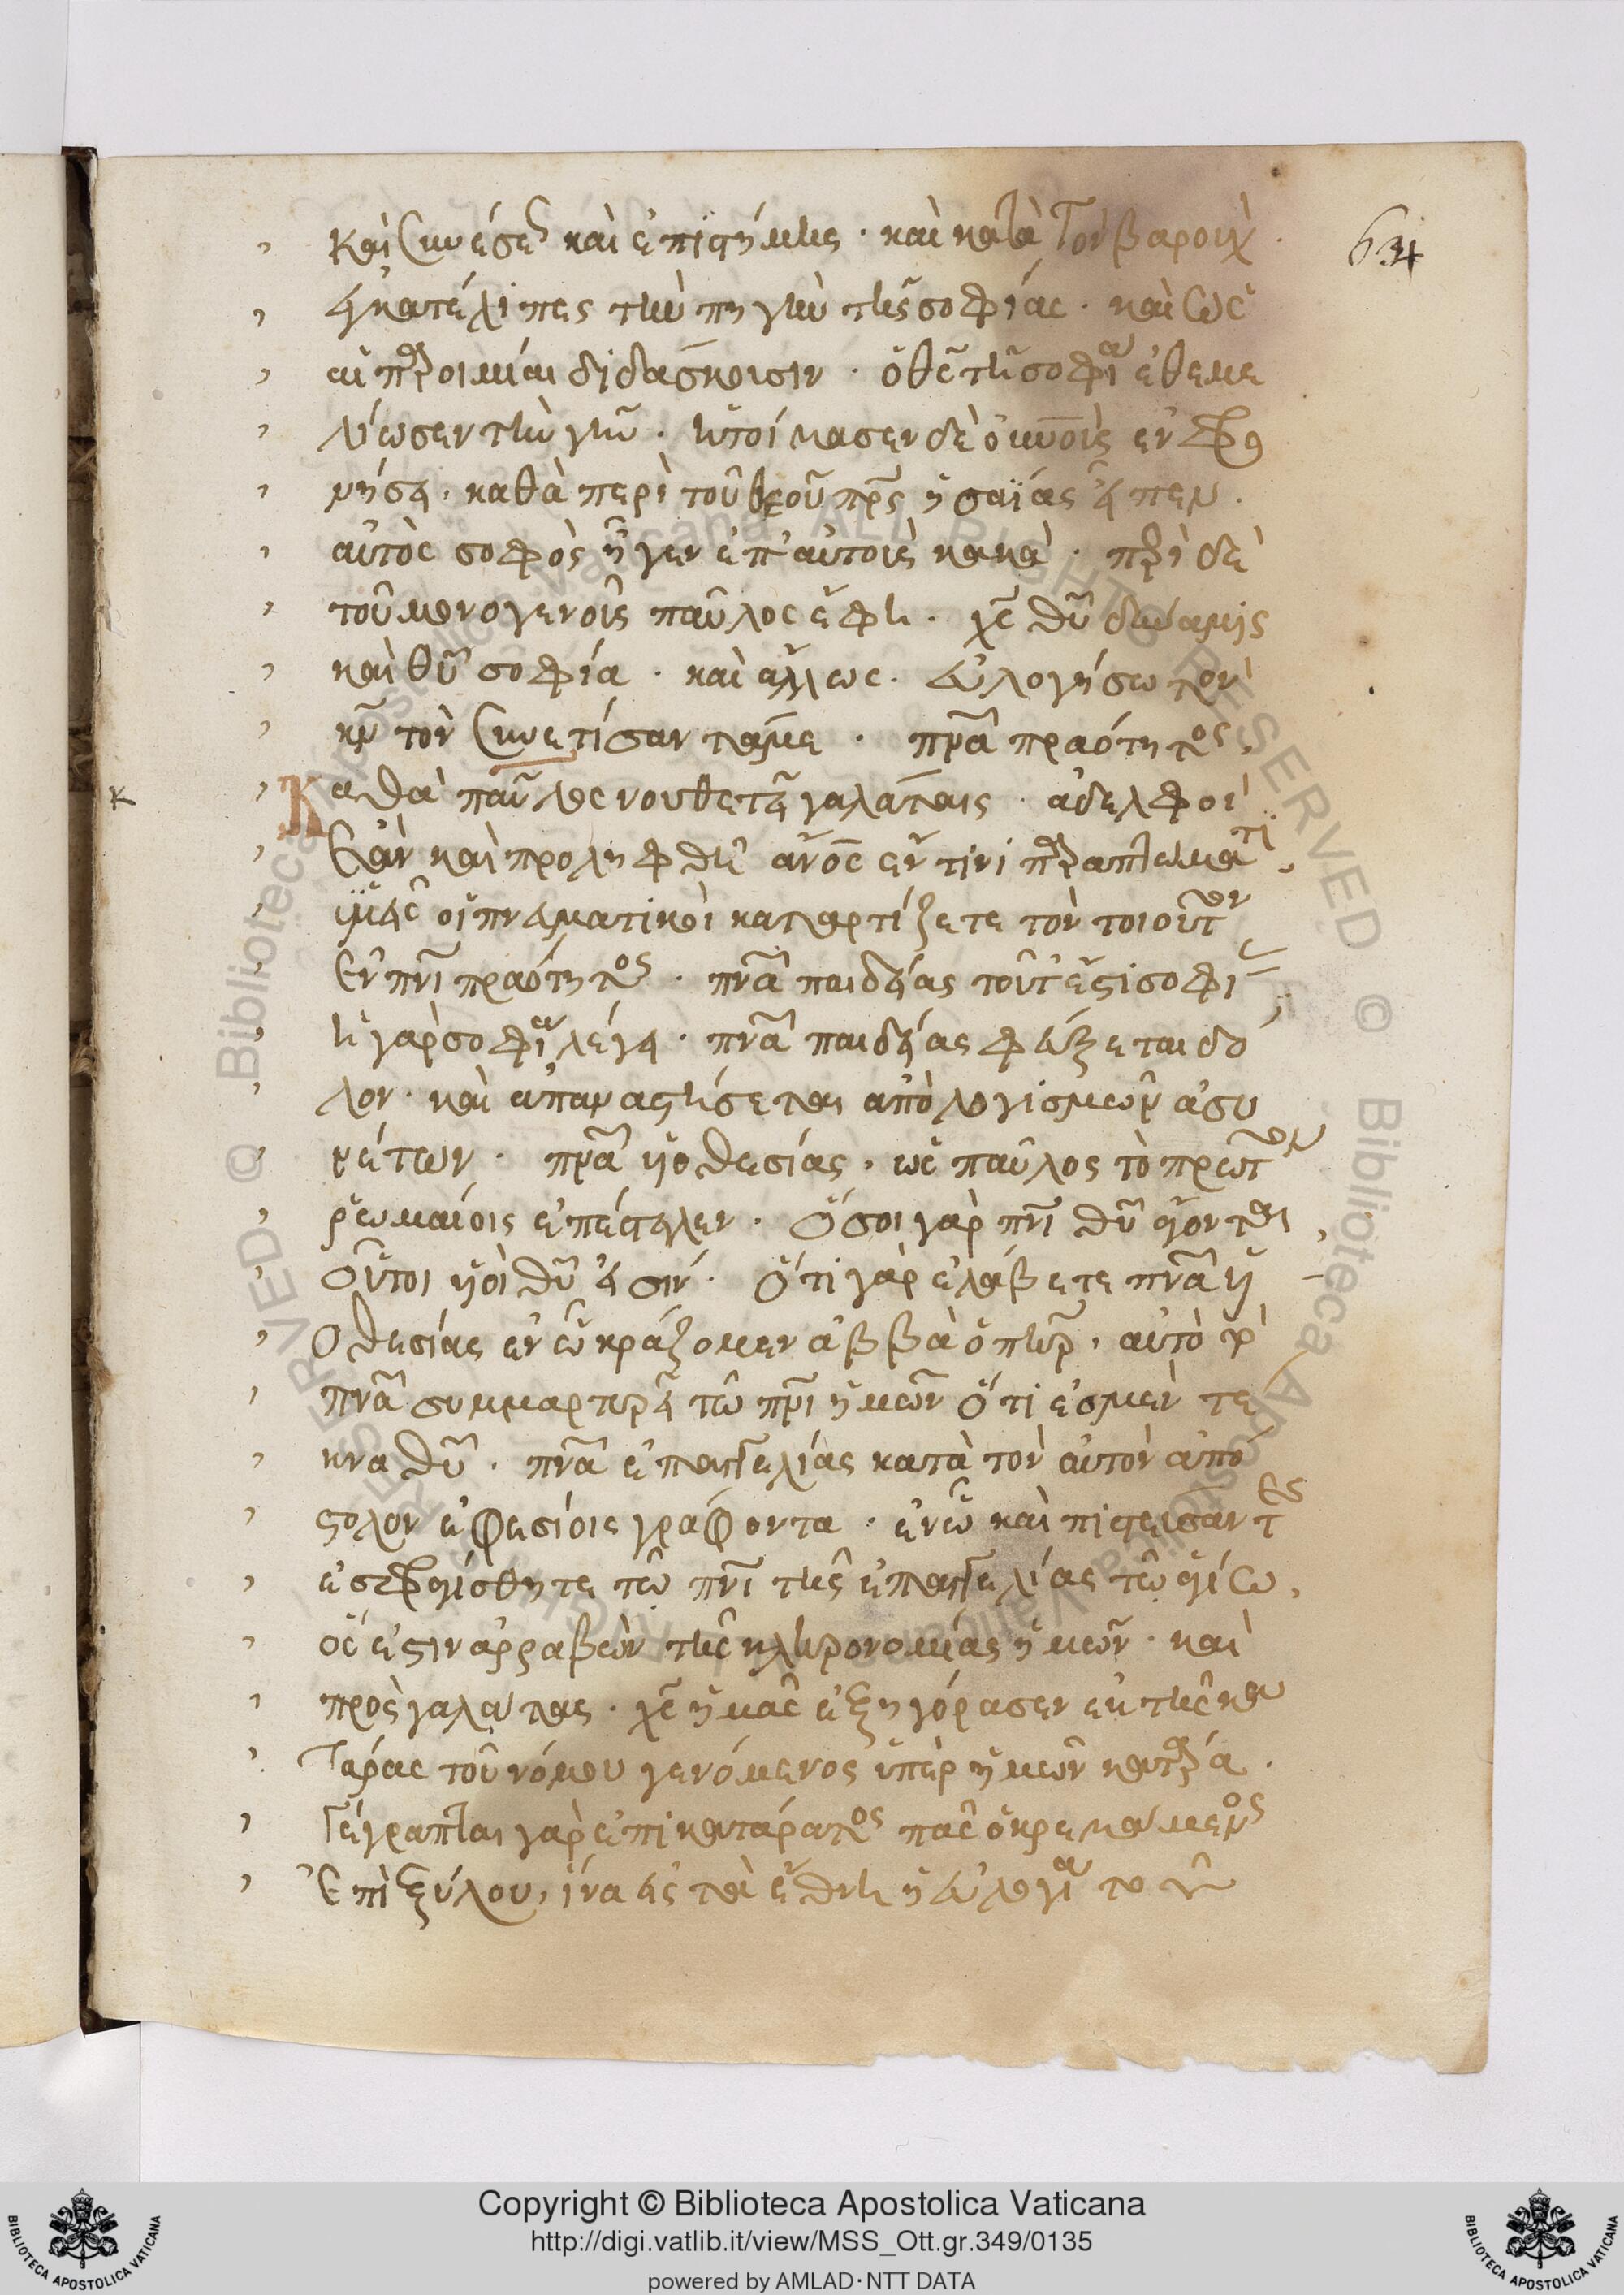 καὶ συνέσεως καὶ ἐπιστήμης · καὶ κατὰ τὸν βαροὺχ ·
ἐγκατέλιπες τὴν πηγὴν τῆς σοφίας · καὶ ὡς
αἱ παροιμίαι διδάσκουσιν · ὁ θεὸς τῇ σοφίᾳ ἐθεμε
λίωσεν τὴν γῆν · ἡτοίμασεν δὲ οὐνοὺς ἐν φρο
νήσει · καθὰ περὶ τοῦ θεοῦ πρς ἡσαΐας εἶπεν ·
αὐτὸς σοφὸς ἦγεν ἐπ' αὐτοὺς κακά · περὶ δὲ
τοῦ μονογενοῦς παῦλος ἔφη · χς θυ δύναμις
καὶ θυ σοφία · καὶ ἄλλως · εὐλογήσω τὸν
κν τὸν συνετίσαντά με · πνα πραότητος ·
Καθὰ παῦλος νουθετεῖ γαλάταις · ἀδελφοὶ
ἐὰν καὶ προληφθῇ ανος ἔν τινι παραπτώματι
ὑμεῖς οἱ πνευματικοὶ καταρτίζετε τὸν τοιοῦτον
ἐν πνι πραότητος · πνα παιδείας τοῦτ' ἔστι σοφί
ἡ γὰρ σοφία λέγει · πνα παιδείας φεύξεται δό
λον · καὶ ἀπαναστήσεται ἀπὸ λογισμῶν ἀσυ
νέτων · πνα υἱοθεσίας · ὡς παῦλος τὸ πρῶτον
ῥωμαίοις ἐπέστειλεν · ὅσοι γὰρ πνι θυ ἄγονται,
οὗτοι υἱοὶ θυ εἰσίν · ὅτι γὰρ ἐλάβετε πνα υἱ
οθεσίας ἐν ᾧ κράζομεν ἀββὰ ὁ πηρ · αὐτὸ τὸ
πνα συμμαρτυρεῖ τῷ πνι ἡμῶν ὅτι ἐσμὲν τέ
κνα θυ · πνα ἐπαγγελίας κατὰ τὸν αὐτὸν ἀπό
στολον ἐφεσίοις γράφοντα · ἐν ᾧ καὶ πιστεύσαντες
ἐσφραγίσθητε τῷ πνι τῆς ἐπαγγελίας τῷ ἁγίῳ,
ὅς ἐστιν ἀρραβὼν τῆς κληρονομίας ἡμῶν · καὶ
πρὸς γαλάτας · χς ἡμᾶς ἐξηγόρασεν ἐκ τῆς κα
τάρας τοῦ νόμου γενόμενος ὑπὲρ ἡμῶν κατάρα ·
Γέγραπται γὰρ ἐπικατάρατος πᾶς ὁ κρεμάμενος
Ἐπὶ ξύλου, ἵνα εἰς τὰ ἔθνη ἡ εὐλογία τοῦ